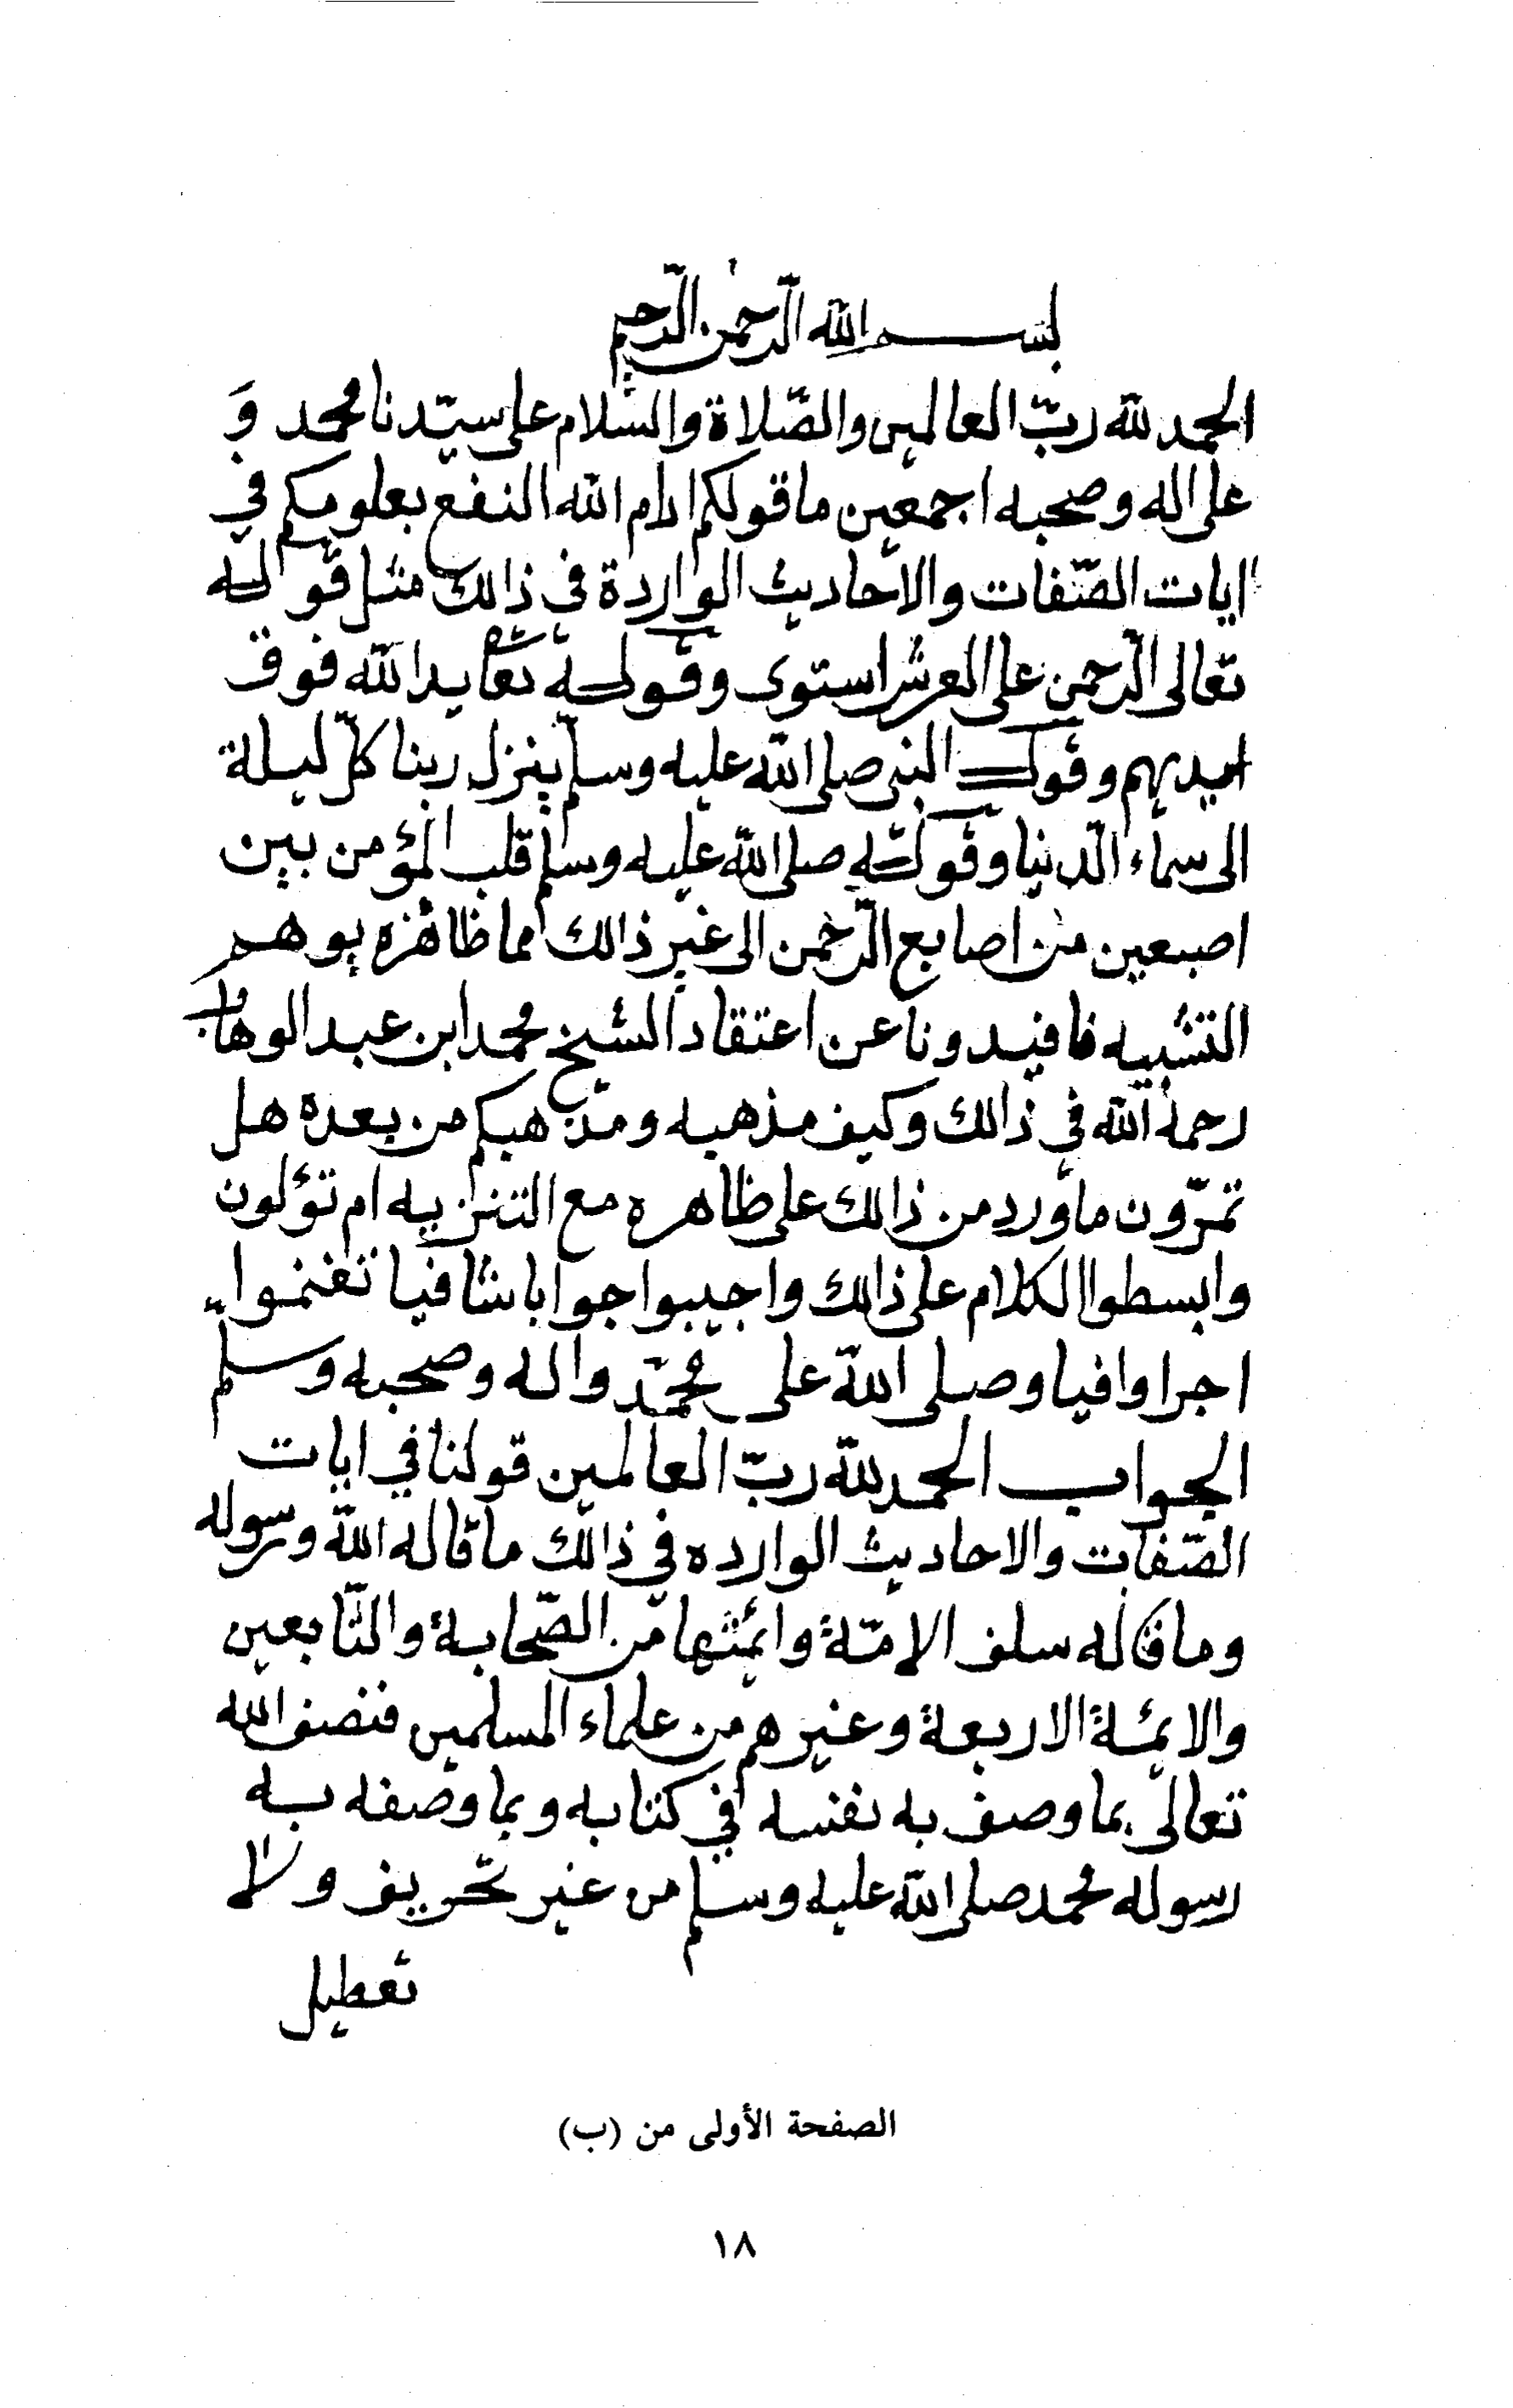 بسم الله الرحمن الرحيم
الحمد لله ربّ العالمين والصّلاة والسّلام على سيّدنا محمد وَ
على اله وصحبه اجمعين ما قولكم ادام الله النفع بعلومكم في
ايات الصّفات والاحاديث الواردة في ذالك مثل قوله
تعالى الرّحمن على العرش استوى وقوله تعا يد الله فوق
ايديهم وقول النبي صلى الله عليه وسلم ينزل ربنا كلّ ليلة
الى سماء الدّنيا وقوله صلى الله عليه وسلم قلب المؤمن بين
اصبعين من اصابع الرّحمن الى غير ذالك مما ظاهره يوهم
التشبيه فافيدونا عن اعتقاد الشيخ محمد ابن عبد الوهاب
رحمه الله في ذالك وكيف مذهبه ومذهبكم من بعده هل
تمرّون ما ورد من ذالك على ظاهره مع التنزيه ام تؤلون
وابسطوا الكلام على ذالك واجيبوا جوابا شافيا تغنموا
اجرا وافيا وصلى الله على محمّد واله وصحبه وسلم
الجواب الحمد لله ربّ العالمين قولنا في ايات
الصّفات والاحاديث الوارده في ذالك ما قاله الله ورسوله
وما قاله سلف الامّة وائمتها من الصّحابة والتّابعين
والائمة الاربعة وغيرهم من علماء المسلمين فنصف الله
تعالى بما وصف به نفسه في كتابه وبما وصفه به
رسوله محمد صلى الله عليه وسلم من غير تحريف ولا
تعطيل
الصفحة الأولى من (ب)
١٨